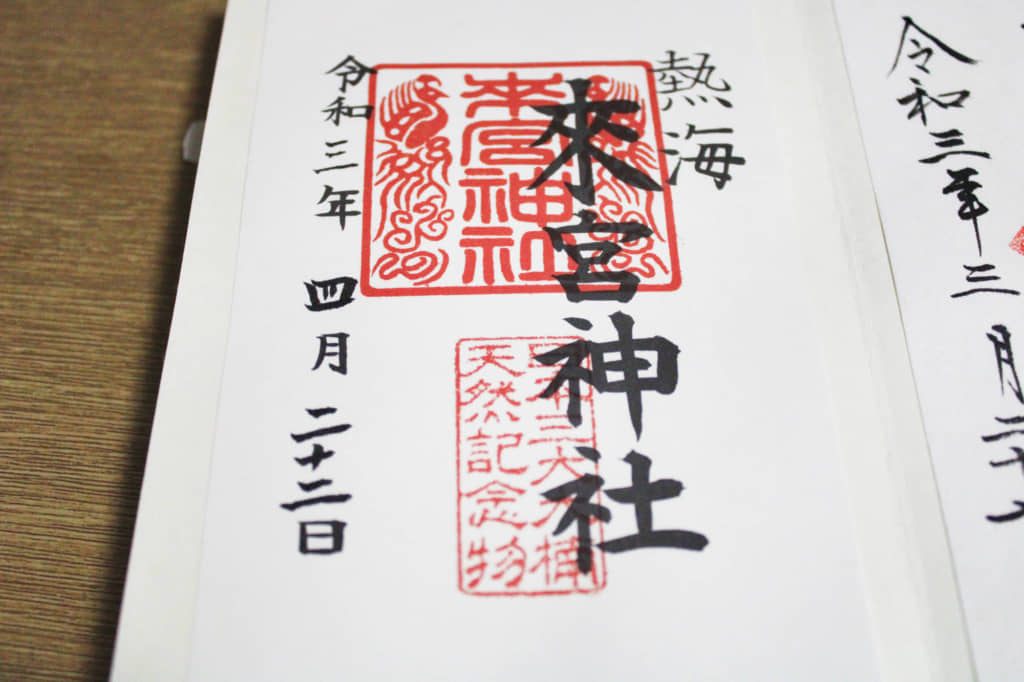 令和三年三月二十
熱海
來宮神社
来宮神社
日本三大大楠
天然記念物
令和三年四月二十二日